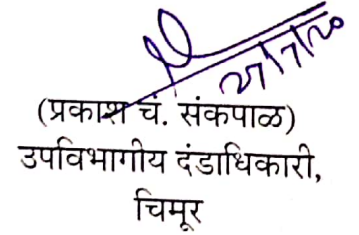 (प्रकाश चं. संकपाळ)
उपविभागीय दंडाधिकारी,
चिमूर